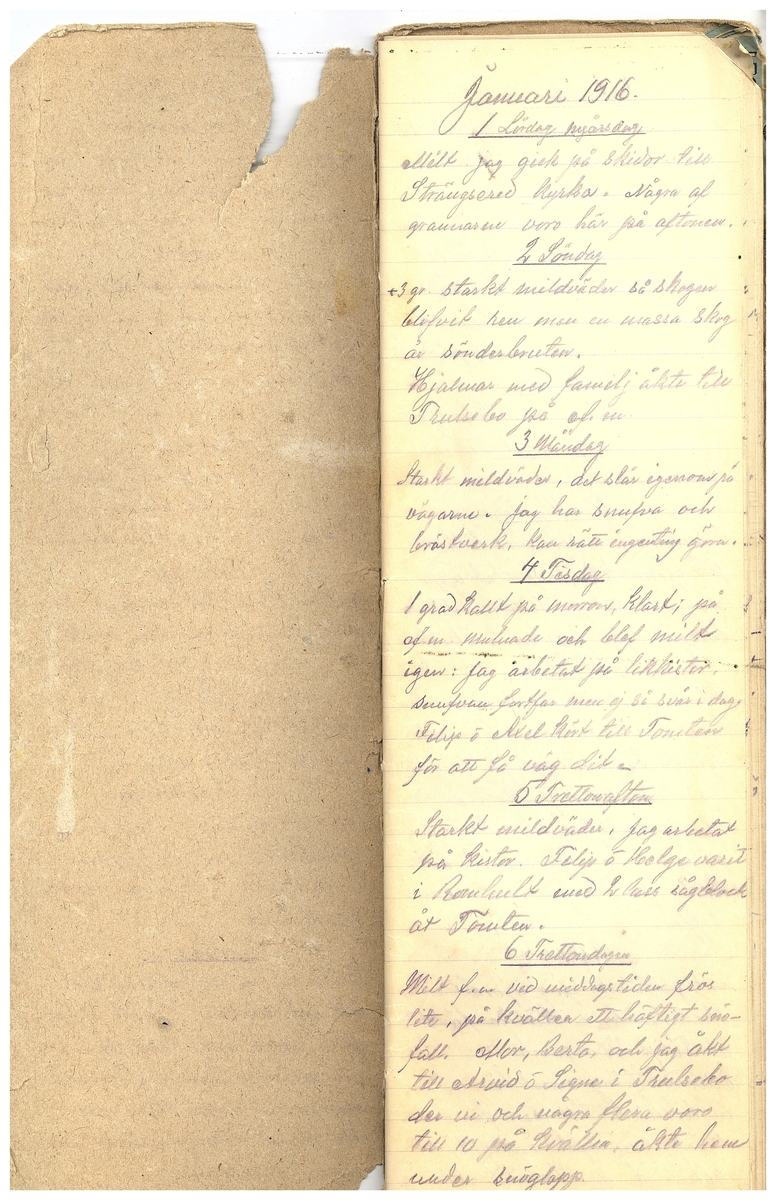 Januari 1916.
1 Lördag nyårsdag
Milt jag gick på skidor till
Strängsered kyrka. Några af
grannarne voro här på aftonen.
2 Söndag
+3 gr. starkt mildväder så skogen
blifvit ren men en massa skog
är sönderbruten.
Hjalmar med familj åkte till
Trulsebo på ef.m.
3 Måndag
Starkt mildväder, det slår igenom på
vägarne. jag har snufva och
bröstverk, kan rätt ingenting göra.
4 Tisdag
1 grad kallt på morron, klart; på
ef.m mulnade och blef milt
igen: jag arbetat på likkistor.
snufvan fortfar men ej så svår i dag,
Filip å Axel kört till Tomten
för att få väg dit.
5 Trettonafton
Starkt mildväder, jag arbetat
på kistor. Filip å Helge varit
i Romhult med 2 lass sågblock
åt Tomten.
6 Trettondagen
Milt f.m vid middagstiden frös
lite, på kvällen ett häftigt snö-
fall. Mor, Berta, och jag åkt
till Arvid å Signe i Trulsebo
der vi och några flera voro
till 10 på kvällen, åkte hem
under snöglopp.